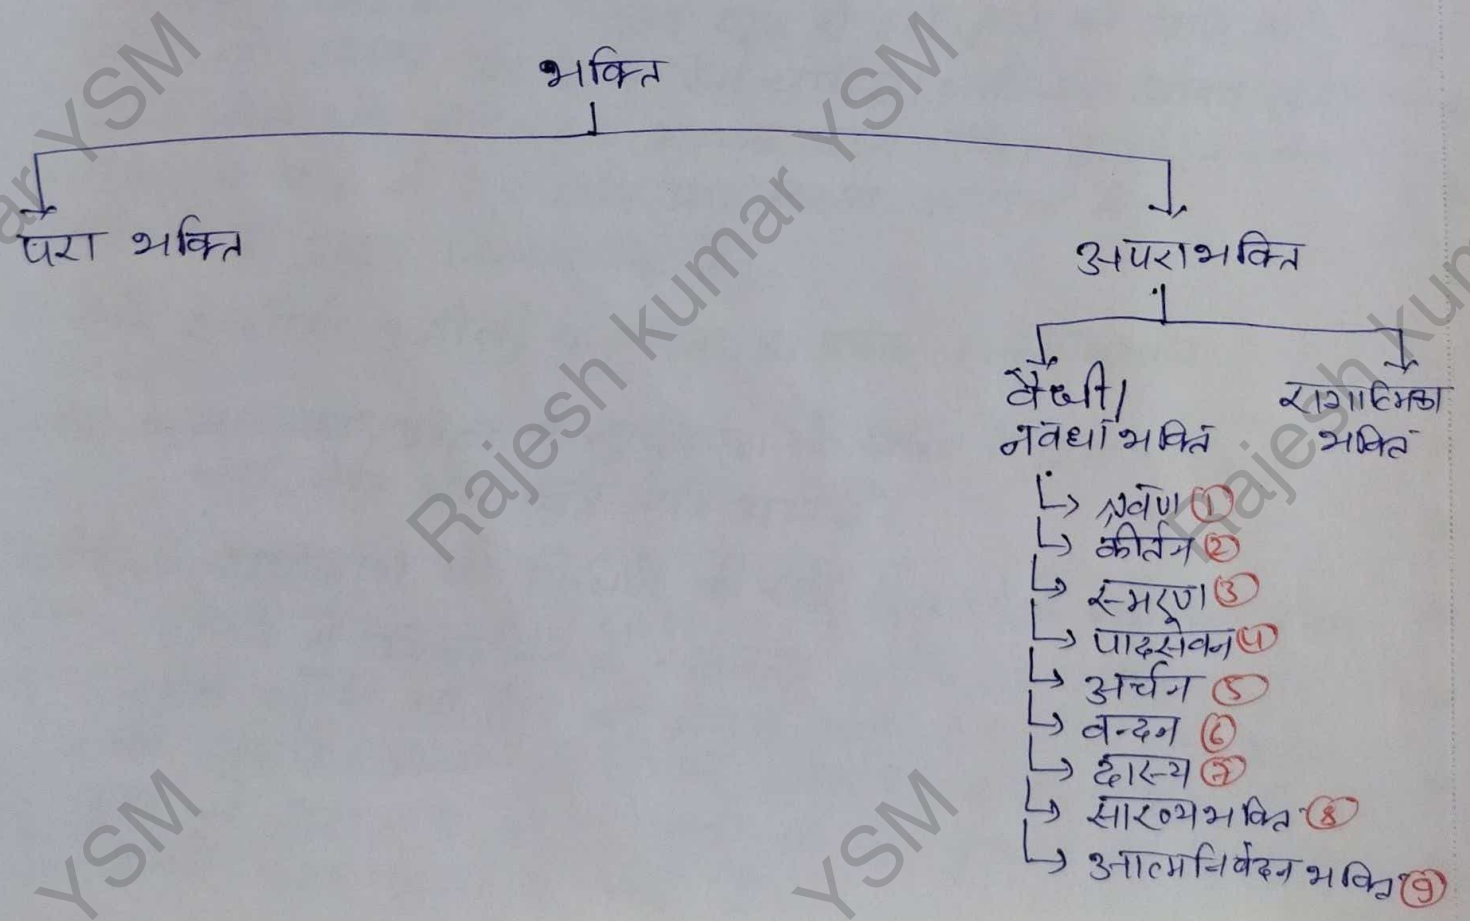 भक्ति
परा भक्ति
अपरा भक्ति
वैधी/
नवधा भक्ति
रागात्मिका
भक्ति
श्रवण 1
कीर्तन 2
स्मरण 3
पादसेवन 4
अर्चन 5
वन्दन 6
दास्य 7
साख्य भक्ति 8
आत्मनिवेदन भक्ति 9
Rajesh kumar YSM
Rajesh kumar
ar YSM
YSM
YSM